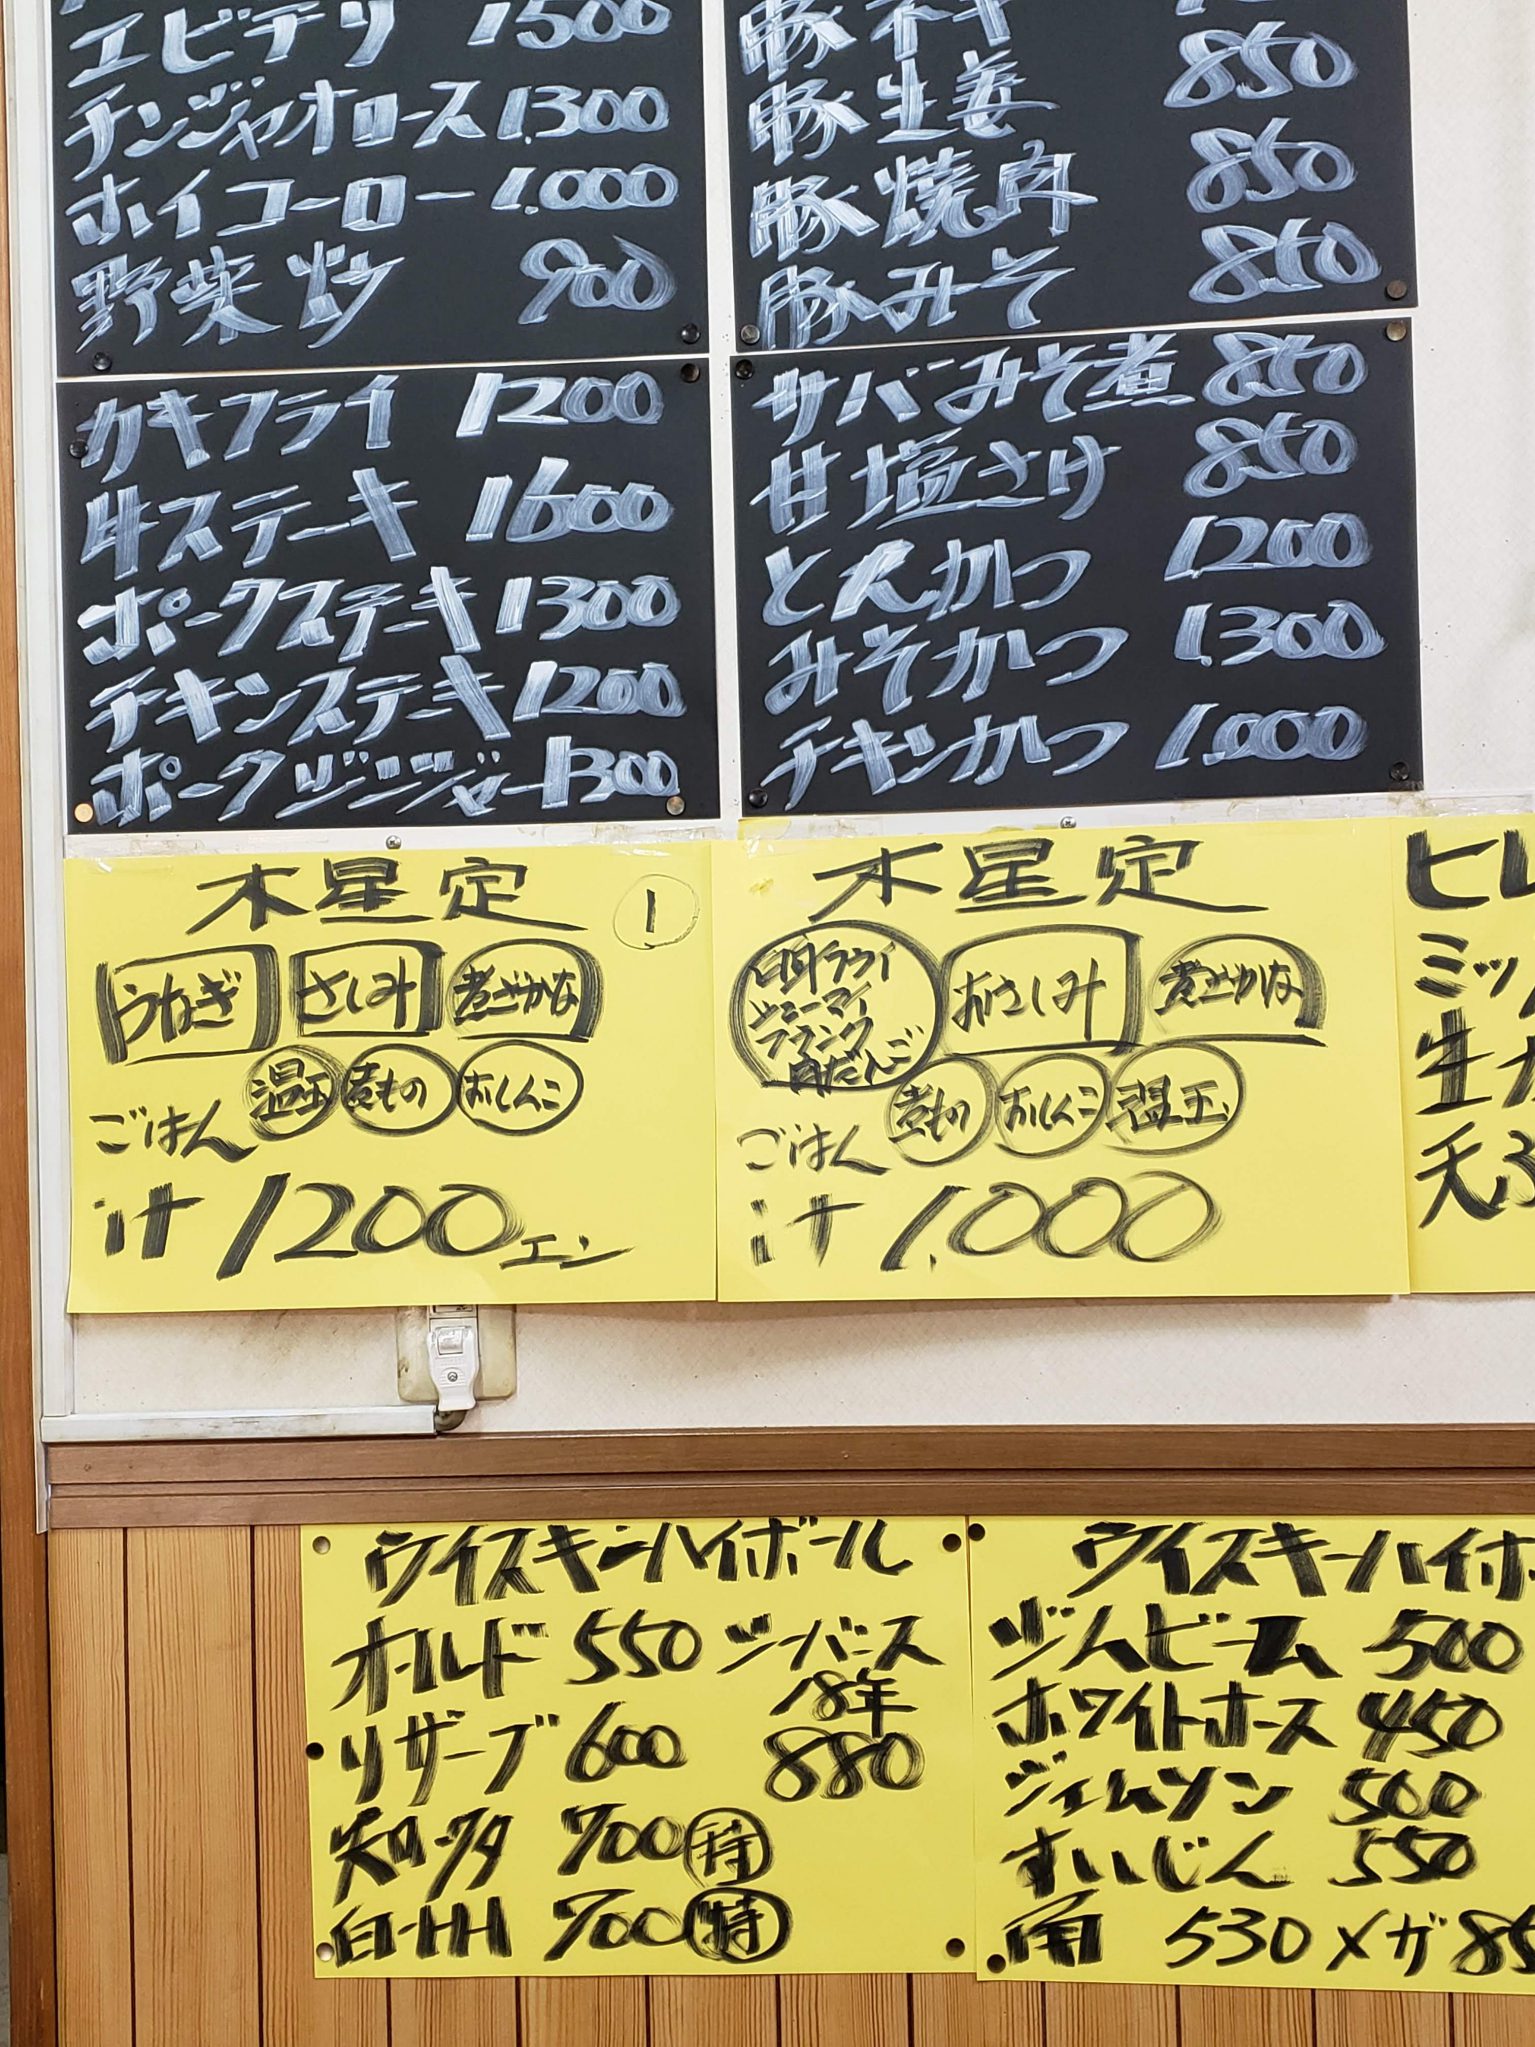 エビチリ 1500
チンジャオロース 1.300
ホイコーロー 1.000
野菜炒 900
豚ネギ
豚生姜 850
豚焼肉 850
豚みそ 850
カキフライ 1200
牛ステーキ 1600
ポークステーキ 1300
チキンステーキ 1200
ポークジンジャー 1300
サバみそ煮 850
甘塩さけ 850
とんかつ 1200
みそかつ 1.300
チキンかつ 1.000
木星定 1
うなぎ さしみ 煮ざかな
温玉 煮もの おしんこ
ごはん
汁 1200エン
木星定
フランク
肉だんご
おさしみ 煮ざかな
煮もの おしんこ 温玉
ごはん
汁 1.000
ヒレ
ミッ
生
天ぷ
ウイスキーハイボール
オールド 550 シーバース
18年
リザーブ 600 880
知多 700 特
白州 700 特
ウイスキーハイボ
ジムビーム 500
ホワイトホース 450
ジェムソン 500
すいじん 550
角 530 メガ 85